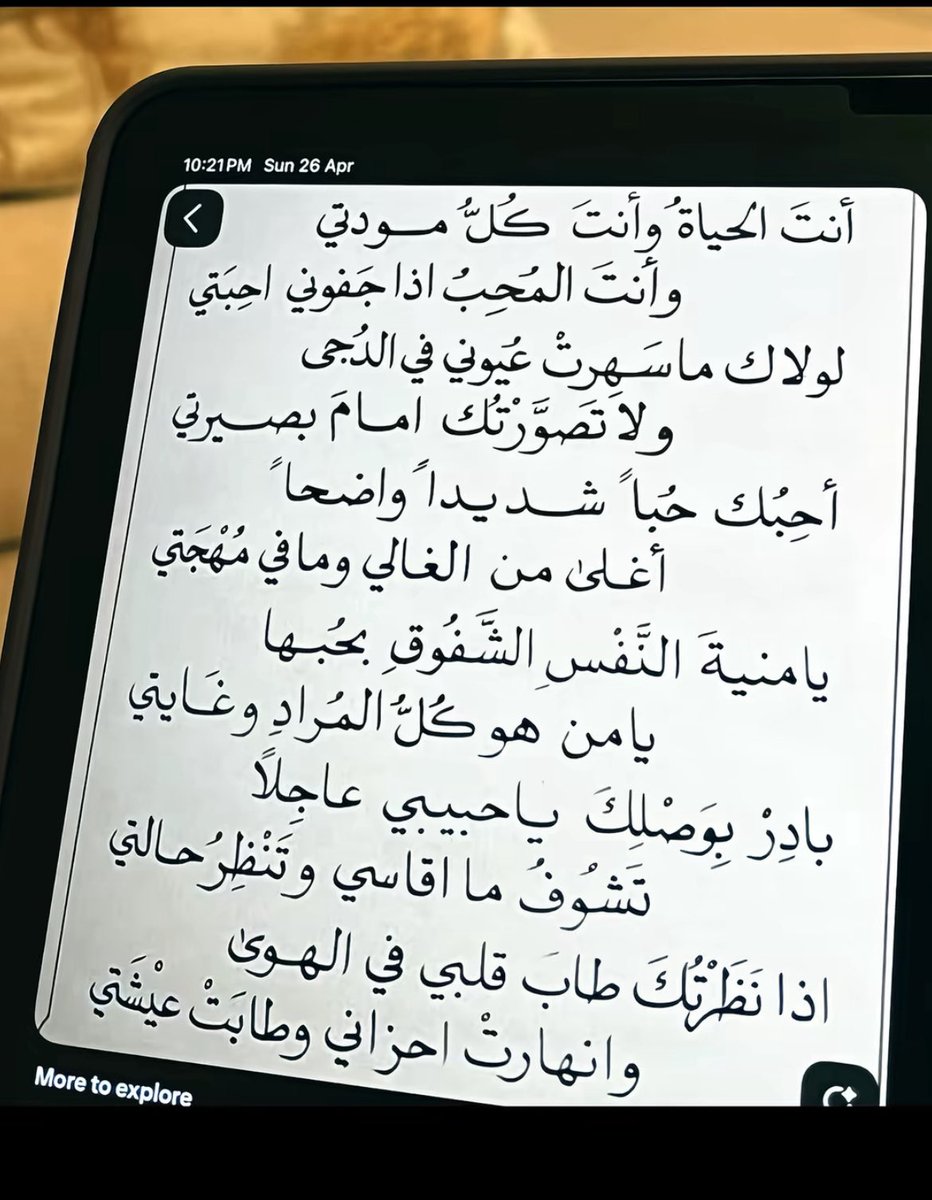 10:21 PM Sun 26 Apr
أنتَ الحياةُ وأنتَ كُلُّ مـودتي
وأنتَ المُحِبُ اذا جَفوني احِبَتي
لولاك ماسَـهِرتْ عيُوني في الدُجى
ولا تَصَوَّرْتُك امامَ بصـيرتي
أحِبُك حُباً شـديداً واضحاً
أغـلىٰ من الغالي ومافي مُهْجَتي
يامنيةَ النَّفْسِ الشَّفُوقِ بحُبـها
يامن هو كُلُّ المُرادِ وغَـايتي
بادِرْ بِوَصْلِكَ يـاحبيبي عاجِلاً
تَشـوُفُ ما اقاسي وتَنْظِرُ حـالتي
اذا نَظَرْتُكَ طابَ قلبي في الهـوىٰ
وانهارتْ احزاني وطابَتْ عيْشَتي
More to explore